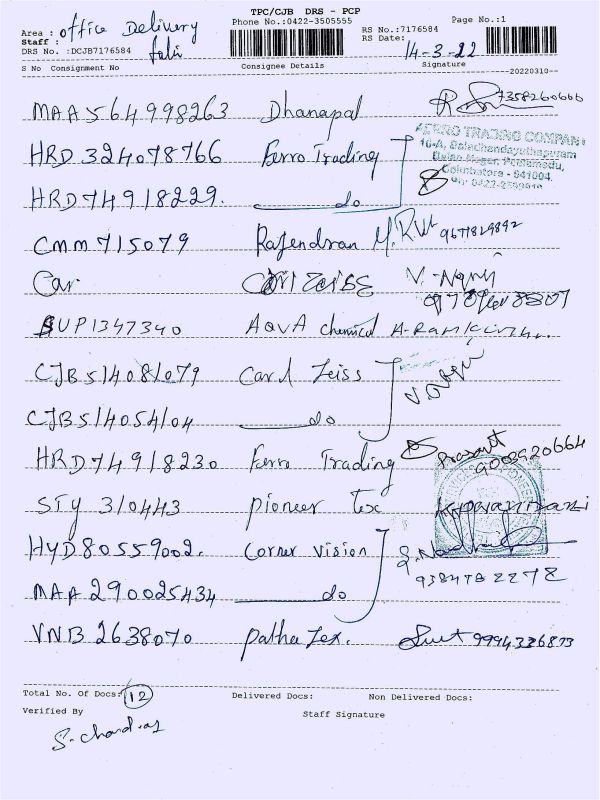 TPC/CJB DRS - PCP
Area : office Delivery Phone No.:0422-3505555 RS No.:7176584 Page No.:1
Staff : RS Date: 14-3-22
DRS No. :DCJB7176584
S No Consignment No Consignee Details Signature
--20220310--
MAA564998263 Dhanapal 7358260666
HRD 324078766 Ferro Trading
FERRO TRADING COMPANY
16-A, Balachandayuthapuram
Coimbatore - 641004.
HRD74918229. do
CMM715079 Rajendran M. 9677829892
Car Carl Zeiss V.
SUP1347340 AQUA chemical A-Ram
CJB514081079 Carl Zeiss
CJB514054104 do
HRD74918230 Ferro Trading Prasant 9003920664
STY 310443 Pioneer Tex
HYD80559002. Corner Vision
MAA 290025434 do
VNB 2638070 Patha Tex.
Total No. Of Docs: 12 Delivered Docs: Non Delivered Docs:
Verified By Staff Signature